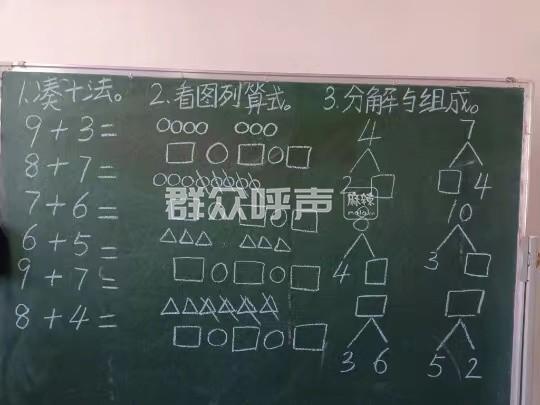 1.凑十法。
9+3=
8+7=
7+6=
6+5=
9+7=
8+4=
2.看图列算式。
3.分解与组成。
4
2
7
4
4
10
3
3 6
5 2
群众呼声
麻辣
malala